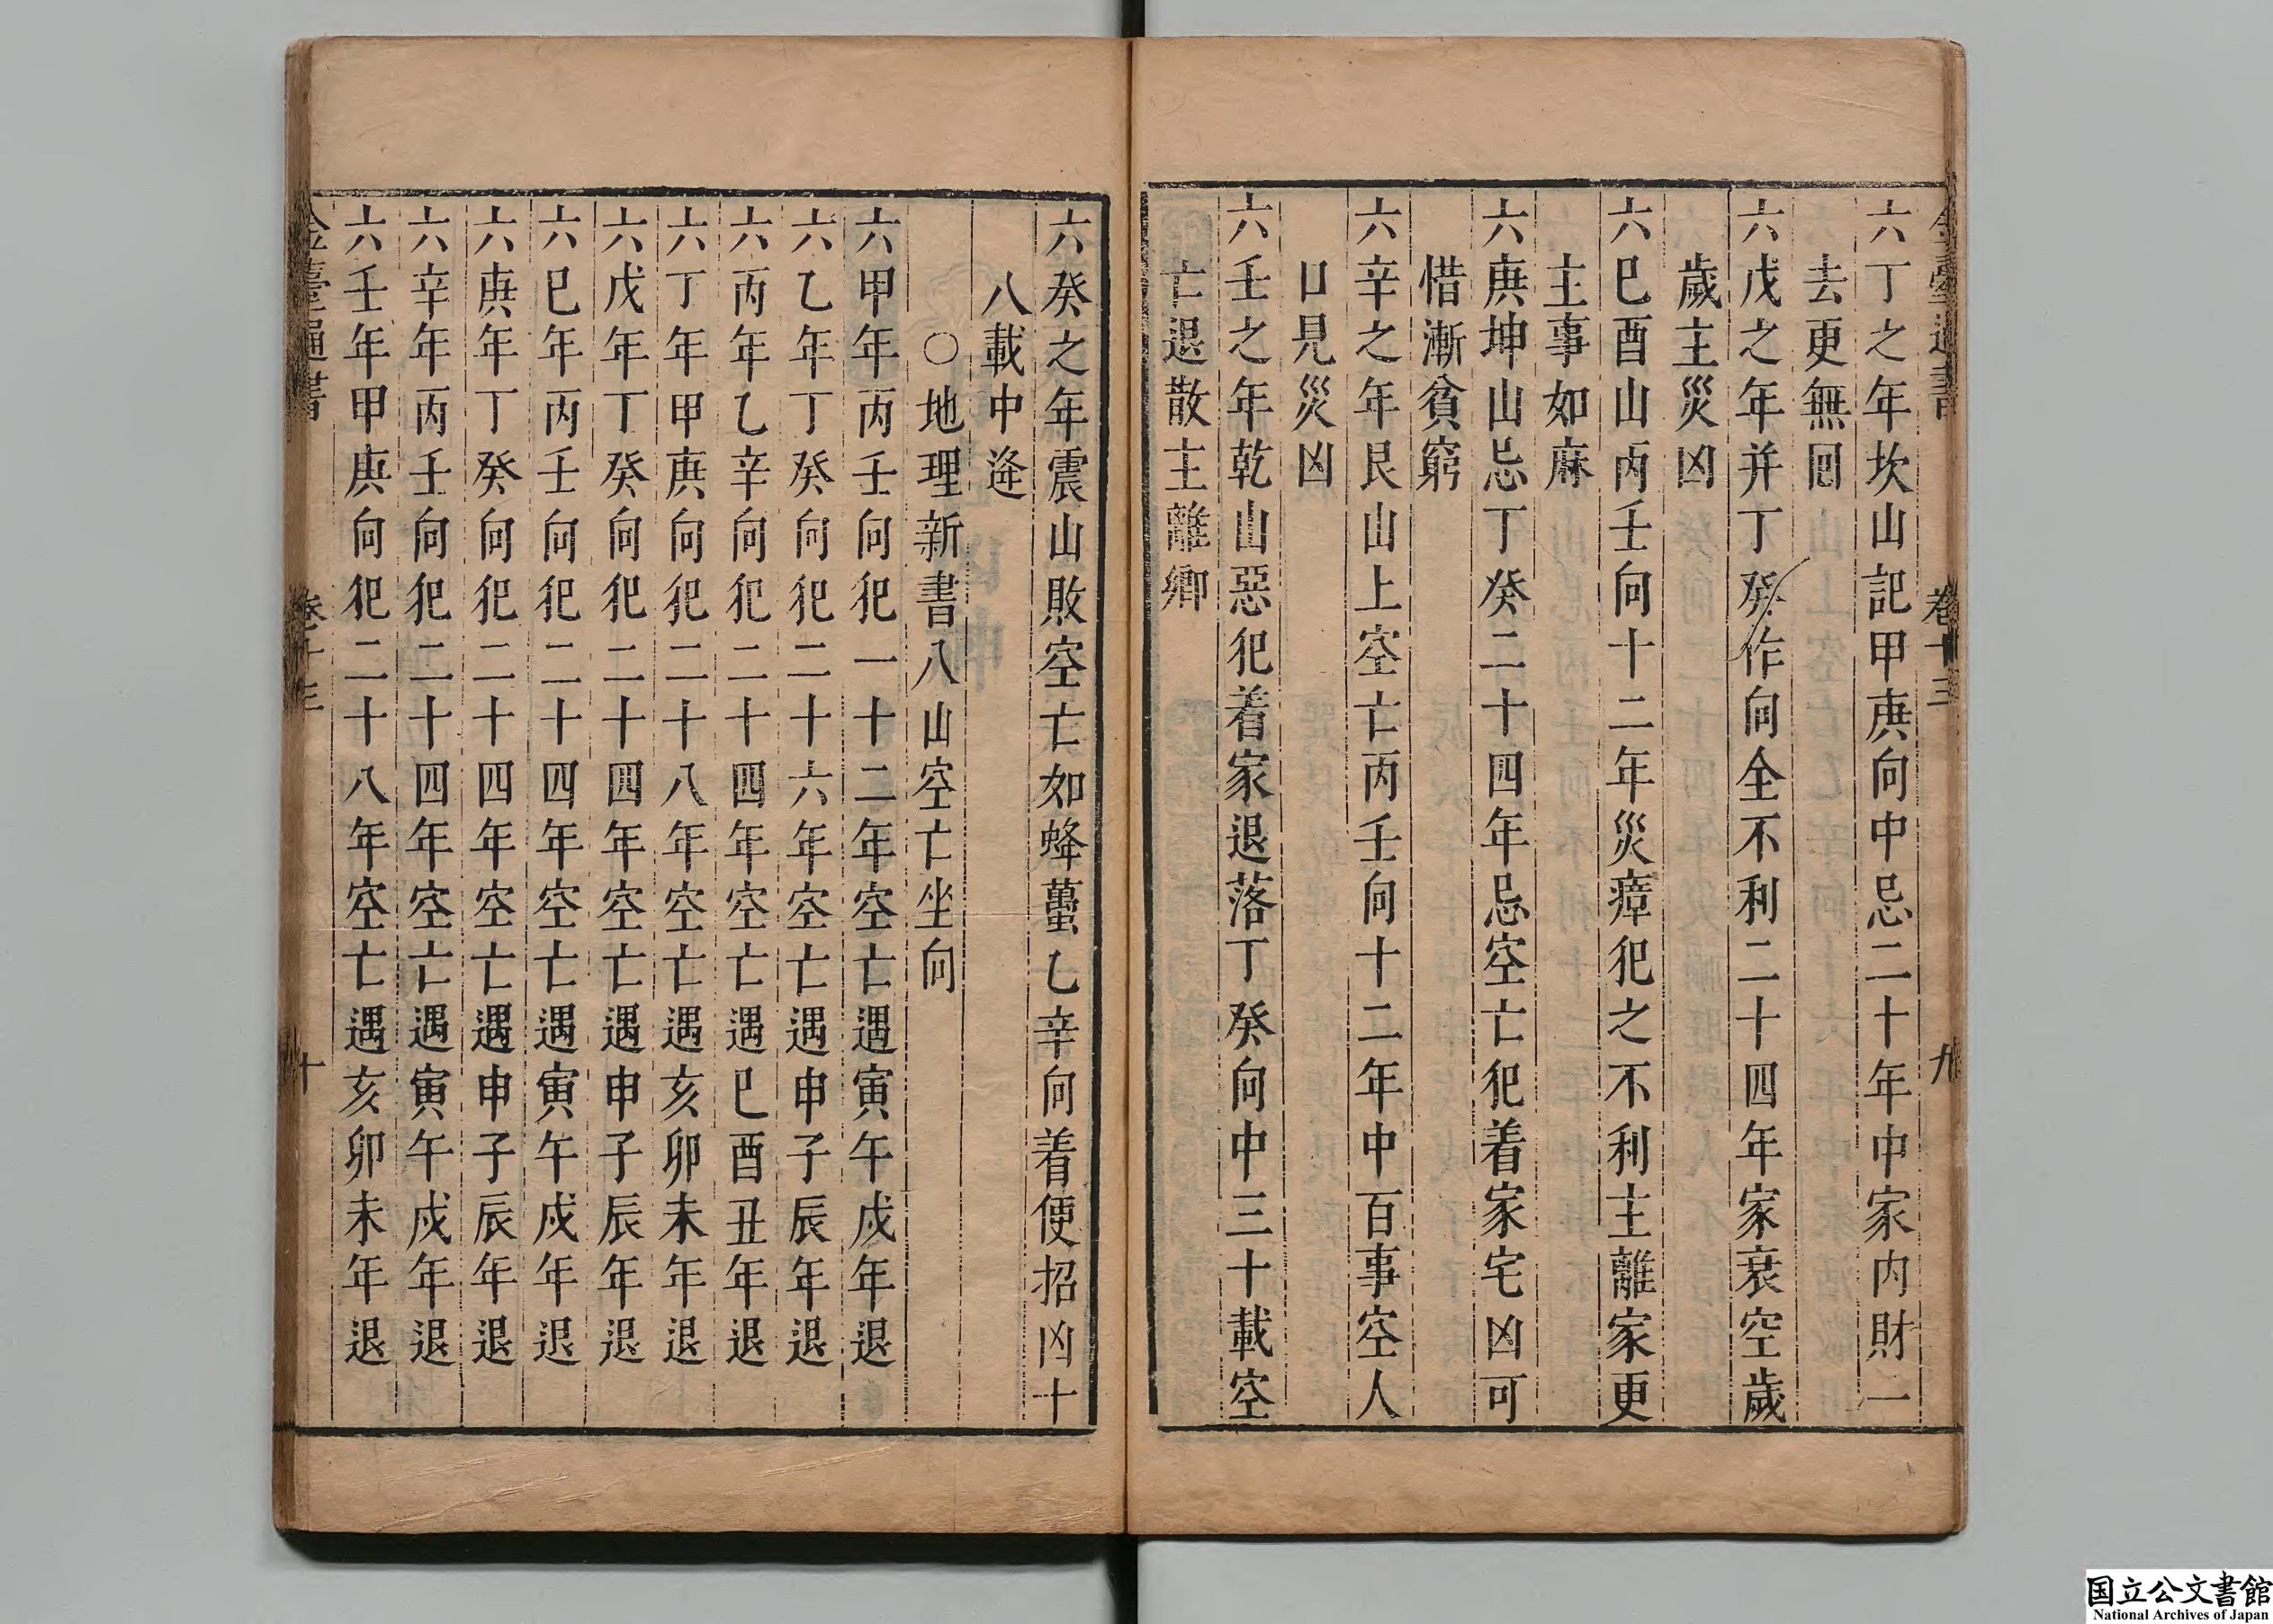 金臺通書 卷十三 九
六丁之年坎山記甲庚向中忌二十年中家內財一
去更無囘
六戊之年并丁癸作向全不利二十四年家衰空歲
歲主災凶
六巳酉山丙壬向十二年災瘴犯之不利主離家更
主事如麻
六庚坤山忌丁癸二十四年忌空亡犯着家宅凶可
惜漸貧窮
六辛之年艮山上空亡丙壬向十二年中百事空人
口見災凶
六壬之年乾山惡犯着家退落丁癸向中三十載空
亡退散主離鄉
六癸之年震山敗空亡如蜂蠆乙辛向着便招凶十
八載中逄
○地理新書八山空亡坐向
六甲年丙壬向犯一十二年空亡遇寅午戌年退
六乙年丁癸向犯二十六年空亡遇申子辰年退
六丙年乙辛向犯二十四年空亡遇巳酉丑年退
六丁年甲庚向犯二十八年空亡遇亥卯未年退
六戊年丁癸向犯二十四年空亡遇申子辰年退
六巳年丙壬向犯二十四年空亡遇寅午戌年退
六庚年丁癸向犯二十四年空亡遇申子辰年退
六辛年丙壬向犯二十四年空亡遇寅午戌年退
六壬年甲庚向犯二十八年空亡遇亥卯未年退
金臺通書 卷十三 十
国立公文書館
National Archives of Japan